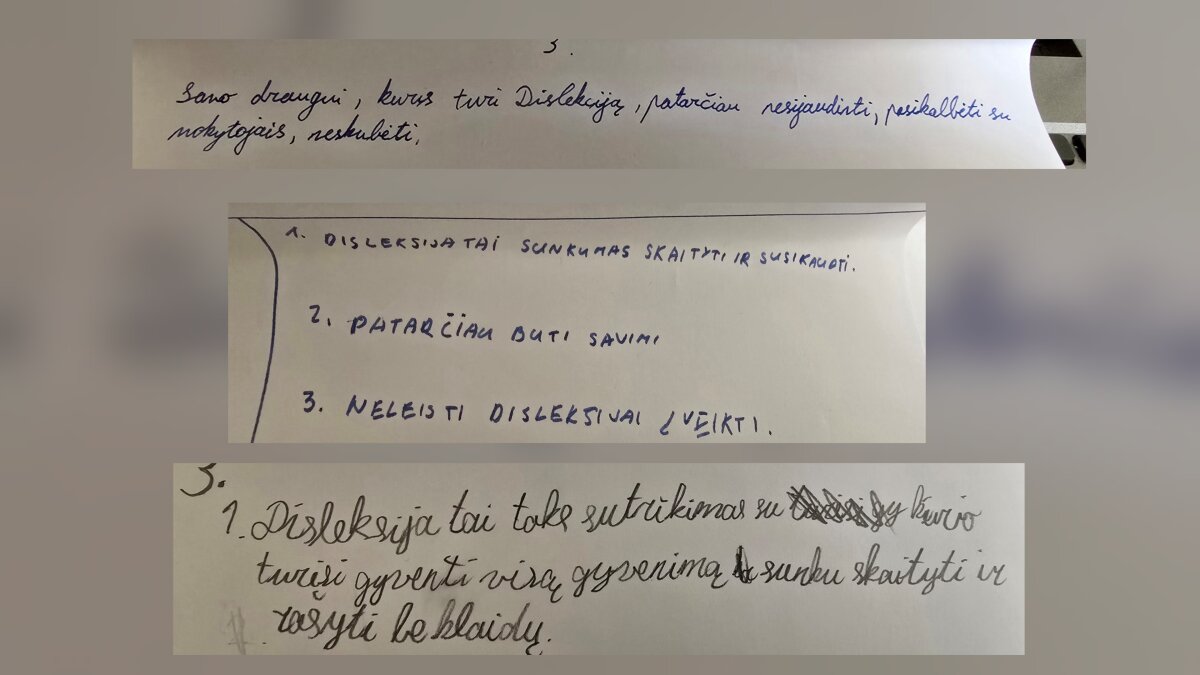 3.
Savo draugui, kuris turi Disleksiją, patarčiau nesijaudinti, pasikalbėti su
mokytojais, neskubėti.
1. DISLEKSIJA TAI SUNKUMAS SKAITYTI IR SUSIKAUPTI.
2. PATARČIAU BUTI SAVIMI
3. NELEISTI DISLEKSIJAI ĮVEIKTI.
3.
1. Disleksija tai toks sutrikimas su kurio
turisi gyventi visą gyvenimą sunku skaityti ir
rašyti be klaidų.